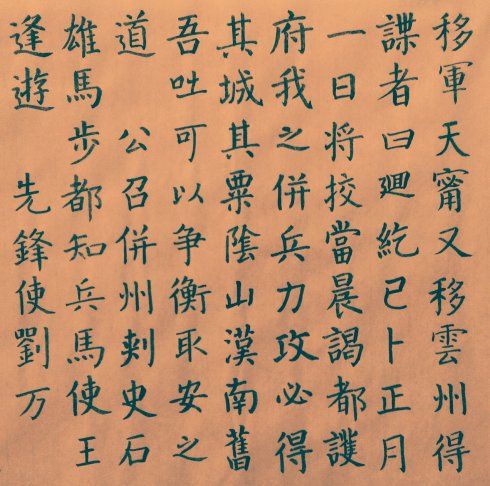 移軍天甯又移雲州得
諜者曰廻紇已卜正月
一日将挍當晨謁都護
府我之併兵力攻必得
其城其粟陰山漢南舊
吾吐可以争衡取安之
道 公召併州剌史石
雄馬步都知兵馬使王
逢遊 先鋒使劉万